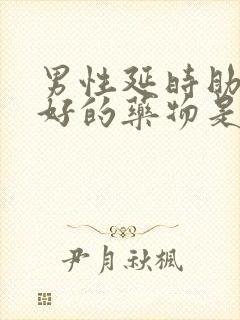 男性延時助
好的藥物是
尹月秋楓